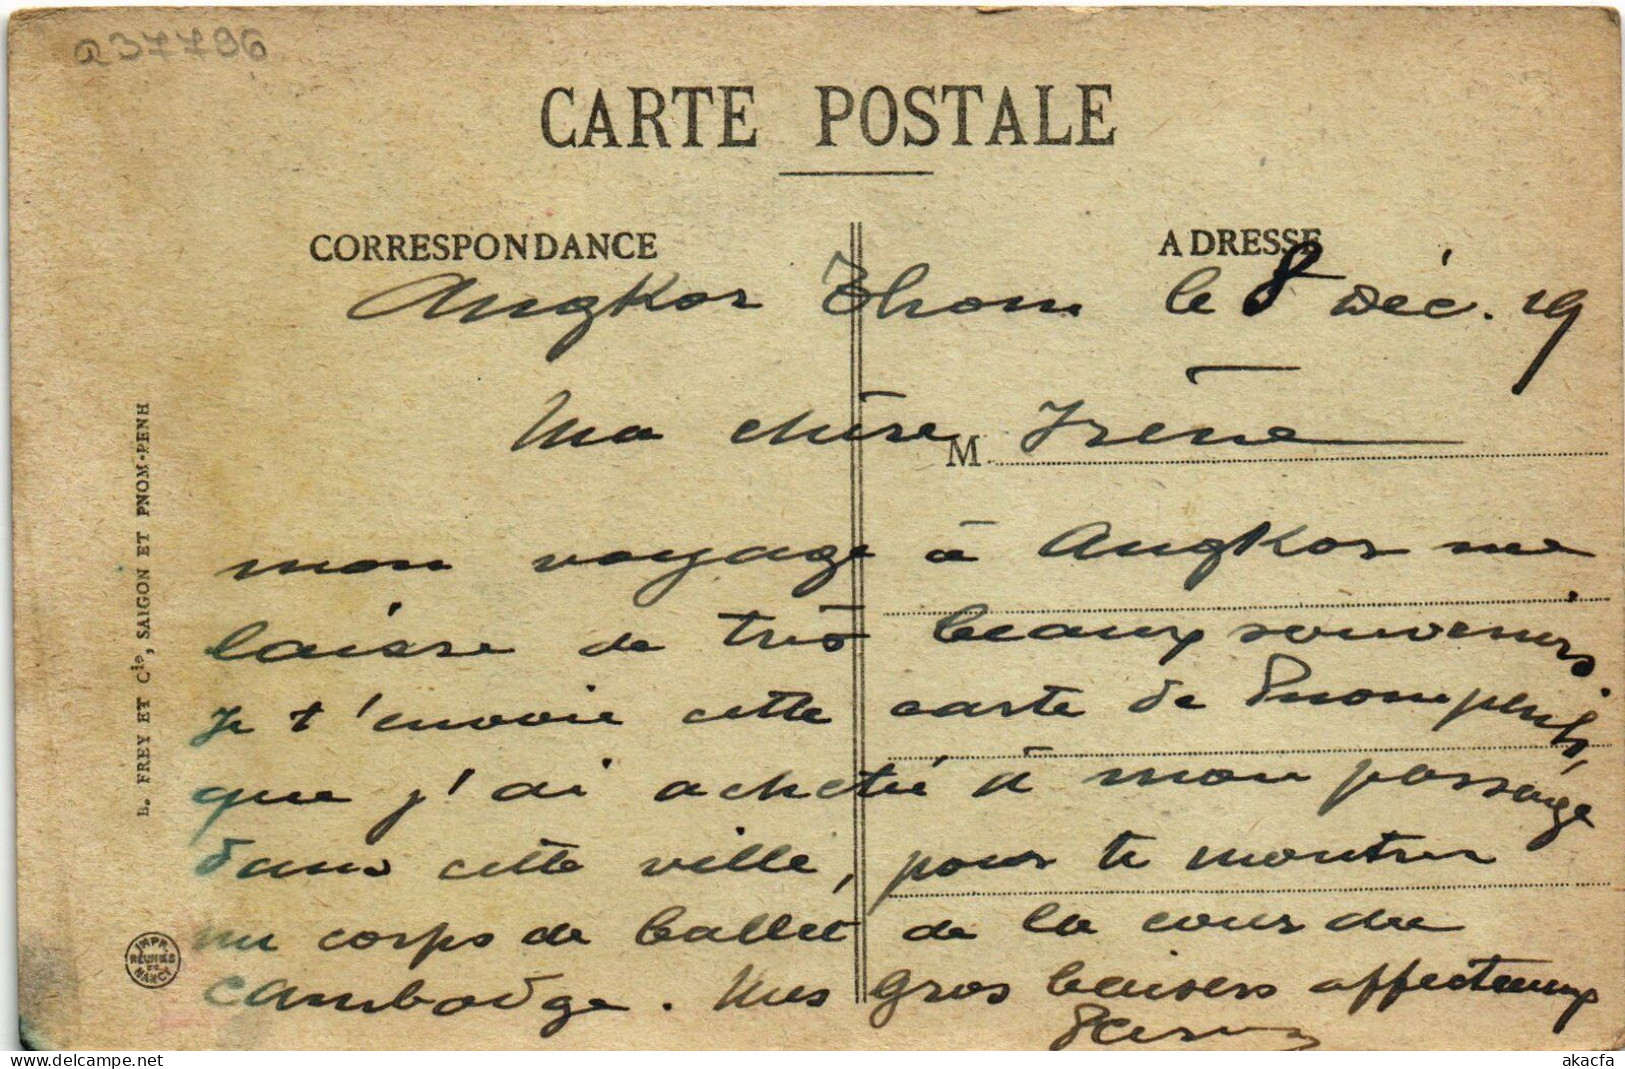 a37796
CARTE POSTALE
CORRESPONDANCE
ADRESSE
Angkor Thom le 8 Déc. 19
Ma chère Irène
M
mon voyage à Angkor me
laisse de très beaux souvenirs
Je t'envoie cette carte de Pnompenh,
que j'ai acheté à mon passage
dans cette ville, pour te montrer
un corps de ballet de la cour du
Cambodge. Mes gros baisers affectueux
B. FREY ET Cie, SAIGON ET PNOM-PENH
IMPR. RÉUNIES DE NANCY
akacfa-delcampe.net
akacfa